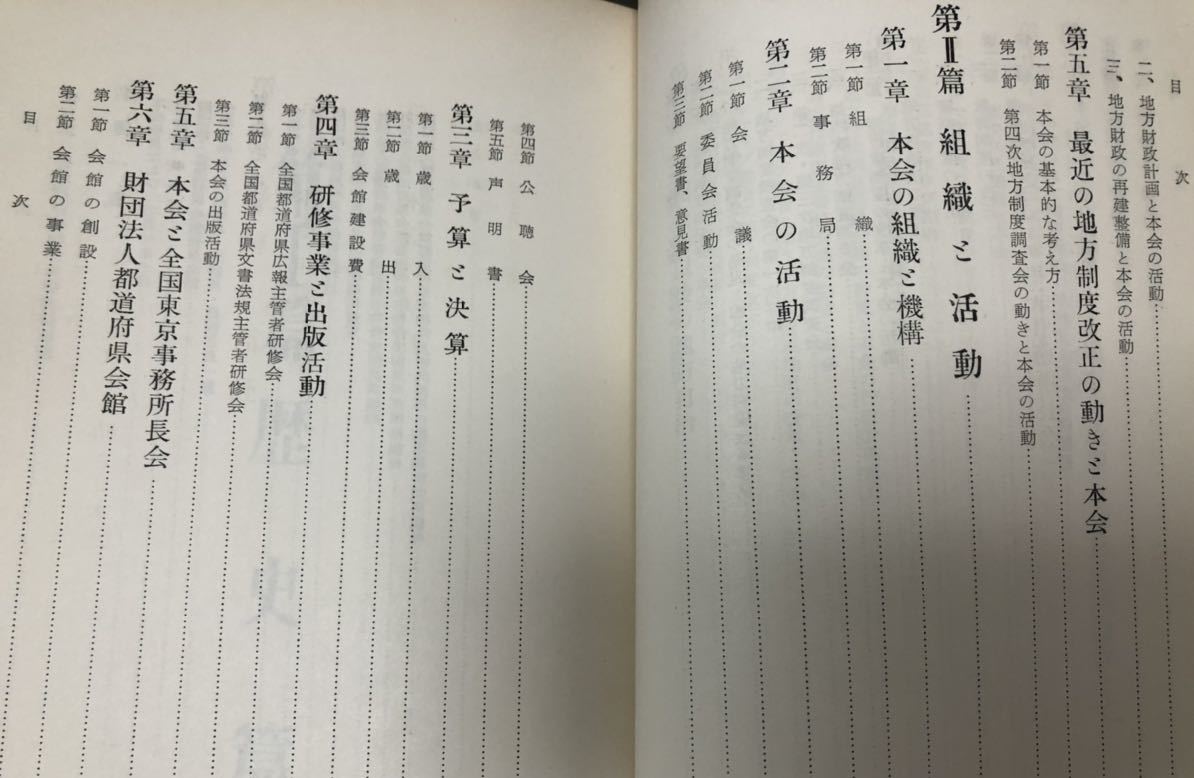 目次
二、地方財政計画と本会の活動
三、地方財政の再建整備と本会の活動
第五章 最近の地方制度改正の動きと本会
第一節 本会の基本的な考え方
第二節 第四次地方制度調査会の動きと本会の活動
第Ⅱ篇 組織と活動
第一章 本会の組織と機構
第一節 組織
第二節 事務局
第二章 本会の活動
第一節 会議
第二節 委員会活動
第三節 要望書、意見書
第四節 公聴会
第五節 声明書
第三章 予算と決算
第一節 歳入
第二節 歳出
第三節 会館建設費
第四章 研修事業と出版活動
第一節 全国都道府県広報主管者研修会
第二節 全国都道府県文書法規主管者研修会
第三節 本会の出版活動
第五章 本会と全国東京事務所長会
第六章 財団法人都道府県会館
第一節 会館の創設
第二節 会館の事業
目次
歴史篇